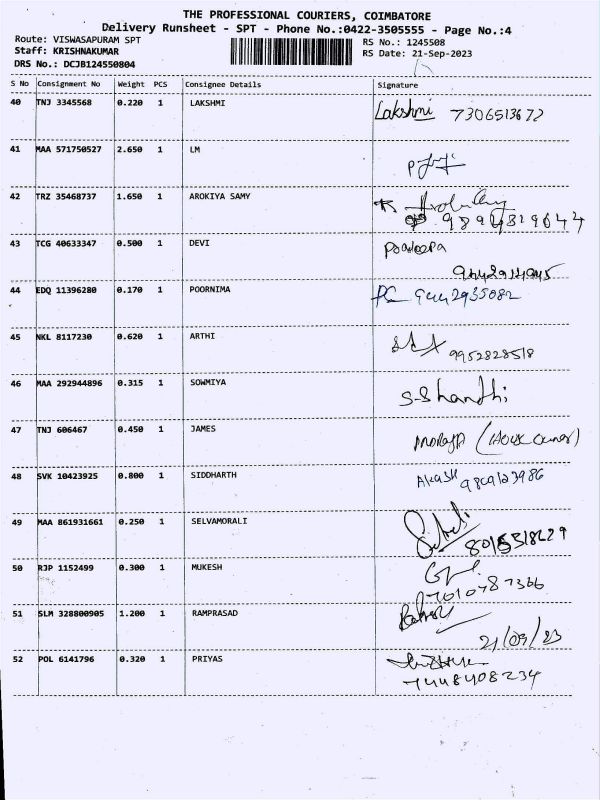 THE PROFESSIONAL COURIERS, COIMBATORE
Delivery Runsheet - SPT - Phone No.:0422-3505555 - Page No.:4
Route: VISWASAPURAM SPT
RS No.: 1245508
Staff: KRISHNAKUMAR
RS Date: 21-Sep-2023
DRS No.: DCJB124550804
S No Consignment No Weight PCS Consignee Details Signature
40 TNJ 3345568 0.220 1 LAKSHMI Lakshmi 7306513672
41 MAA 571750527 2.650 1 LM
42 TRZ 35468737 1.650 1 AROKIYA SAMY
43 TCG 40633347 0.500 1 DEVI
44 EDQ 11396280 0.170 1 POORNIMA 9442935082
45 NKL 8117230 0.620 1 ARTHI 9952828518
46 MAA 292944896 0.315 1 SOWMIYA S-Shandhi
47 TNJ 606467 0.450 1 JAMES (House Owner)
48 SVK 10423925 0.800 1 SIDDHARTH Akash
49 MAA 861931661 0.250 1 SELVAMORALI 8015318629
50 RJP 1152499 0.300 1 MUKESH
51 SLM 328800905 1.200 1 RAMPRASAD 21/09/23
52 POL 6141796 0.320 1 PRIYAS
7448408234